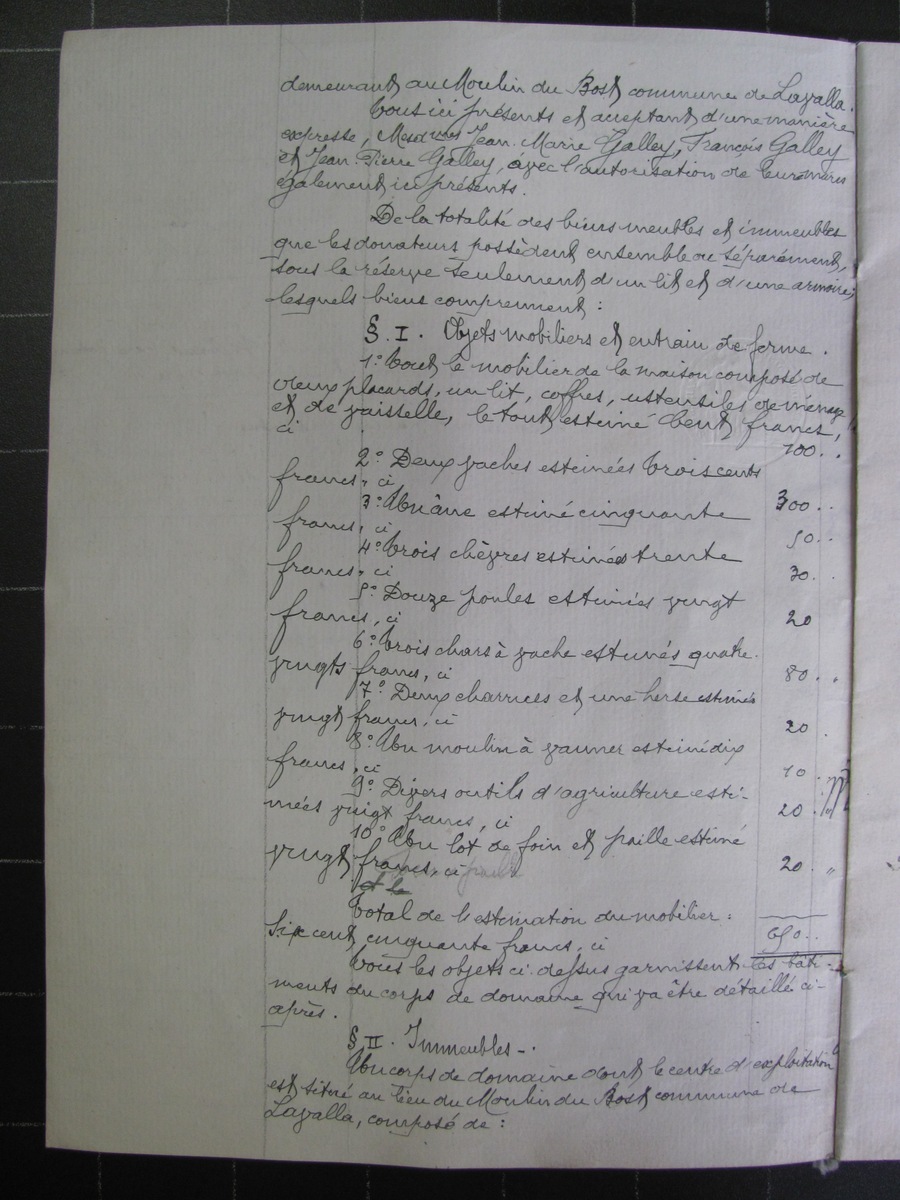 demeurant au Moulin du Bost commune de Lavalla.
Tous ici présents et acceptant d'une manière
expresse, Mesdmes Jean-Marie Galley, François Galley
et Jean-Pierre Galley, avec l'autorisation de leurs maris
également ici présents.
De la totalité des biens meubles et immeubles
que les donateurs possèdent ensemble ou séparément,
sous la réserve seulement d'un lit et d'une armoire;
lesquels biens comprennent :
§. I. Objets mobiliers et entrain de ferme.
1° Tout le mobilier de la maison composé de
deux placards, un lit, coffres, ustensiles de ménage
et de vaisselle, le tout estimé Cent francs,
ci 100..
2° Deux vaches estimées trois cents
francs, ci 300..
3° Un âne estimé cinquante
francs, ci 50..
4° Trois chèvres estimées trente
francs, ci 30.
5° Douze poules estimées vingt
francs, ci 20
6° Trois chars à vache estimés quatre-
vingts francs, ci 80..
7° Deux charrues et une herse estimées
vingt francs, ci 20.
8° Un moulin à vanner estimé dix
francs, ci 10.
9° Divers outils d'agriculture esti-
més vingt francs, ci 20."
10° Un lot de foin et paille estimé
vingt francs, ci 20."
et le
Total de l'estimation du mobilier :
Six cent cinquante francs, ci 650..
Tous les objets ci-dessus garnissent les bâti-
ments du corps de domaine qui va être détaillé ci-
après.
§ II. Immeubles-.
Un corps de domaine dont le centre d'exploitation
est situé au lieu du Moulin du Bost commune de
Lavalla, composé de :